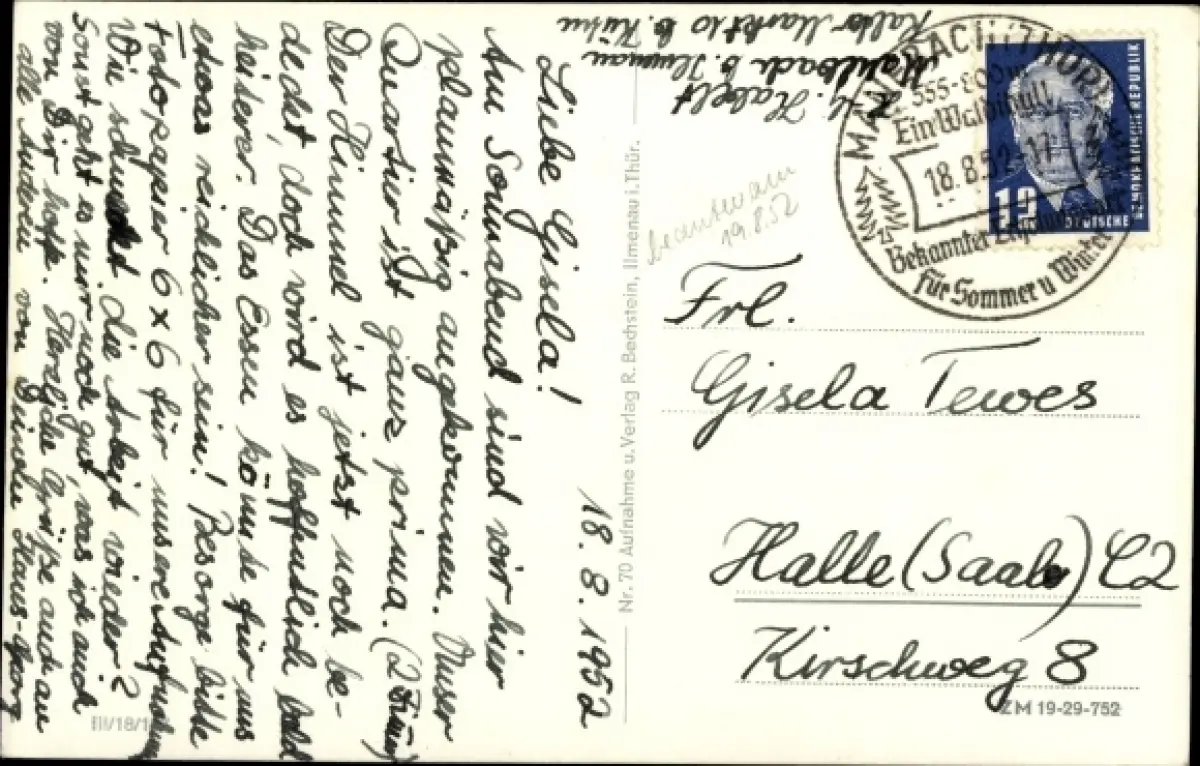 18.8.1952
Liebe Gisela!
Am Sonnabend sind wir hier
planmäßig angekommen. Unser
Quartier ist ganz prima. (2
Der Himmel ist jetzt noch be-
deckt, doch wird es hoffentlich bald
heiterer. Das Essen könnte für uns
etwas reichl. sein! Besorge bitte
Fotopapier 6x6 für unsere
Wie schmeckt die Arbeit wieder?
Sonst geht es nur noch gut, was ich auch
von Dir hoffe. Herzliche Grüße auch an
alle Deinen Hans-Georg
H.-G. Habelt
Manebach b. Ilmenau
Markt 10 b.
beantw. am
19.8.52
Nr. 70 Aufnahme u. Verlag R. Bechstein, Ilmenau i. Thür.
III/18/1
MANEBACH (THÜR)
555-800m
Ein Waldidyll
18.8.52
Bekannter
für Sommer u Winter
12
DEUTSCHE
DEMOKRATISCHE REPUBLIK
Frl.
Gisela Tewes
Halle (Saale) C2
Kirschweg 8
ZM 19-29-752